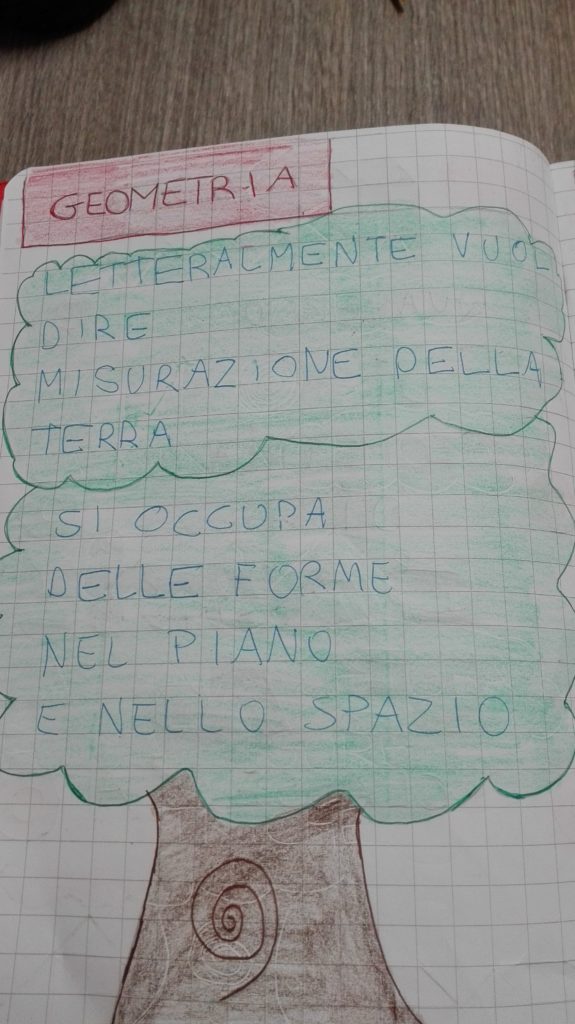 GEOMETRIA
LETTERALMENTE VUOL
DIRE
MISURAZIONE DELLA
TERRA
SI OCCUPA
DELLE FORME
NEL PIANO
E NELLO SPAZIO